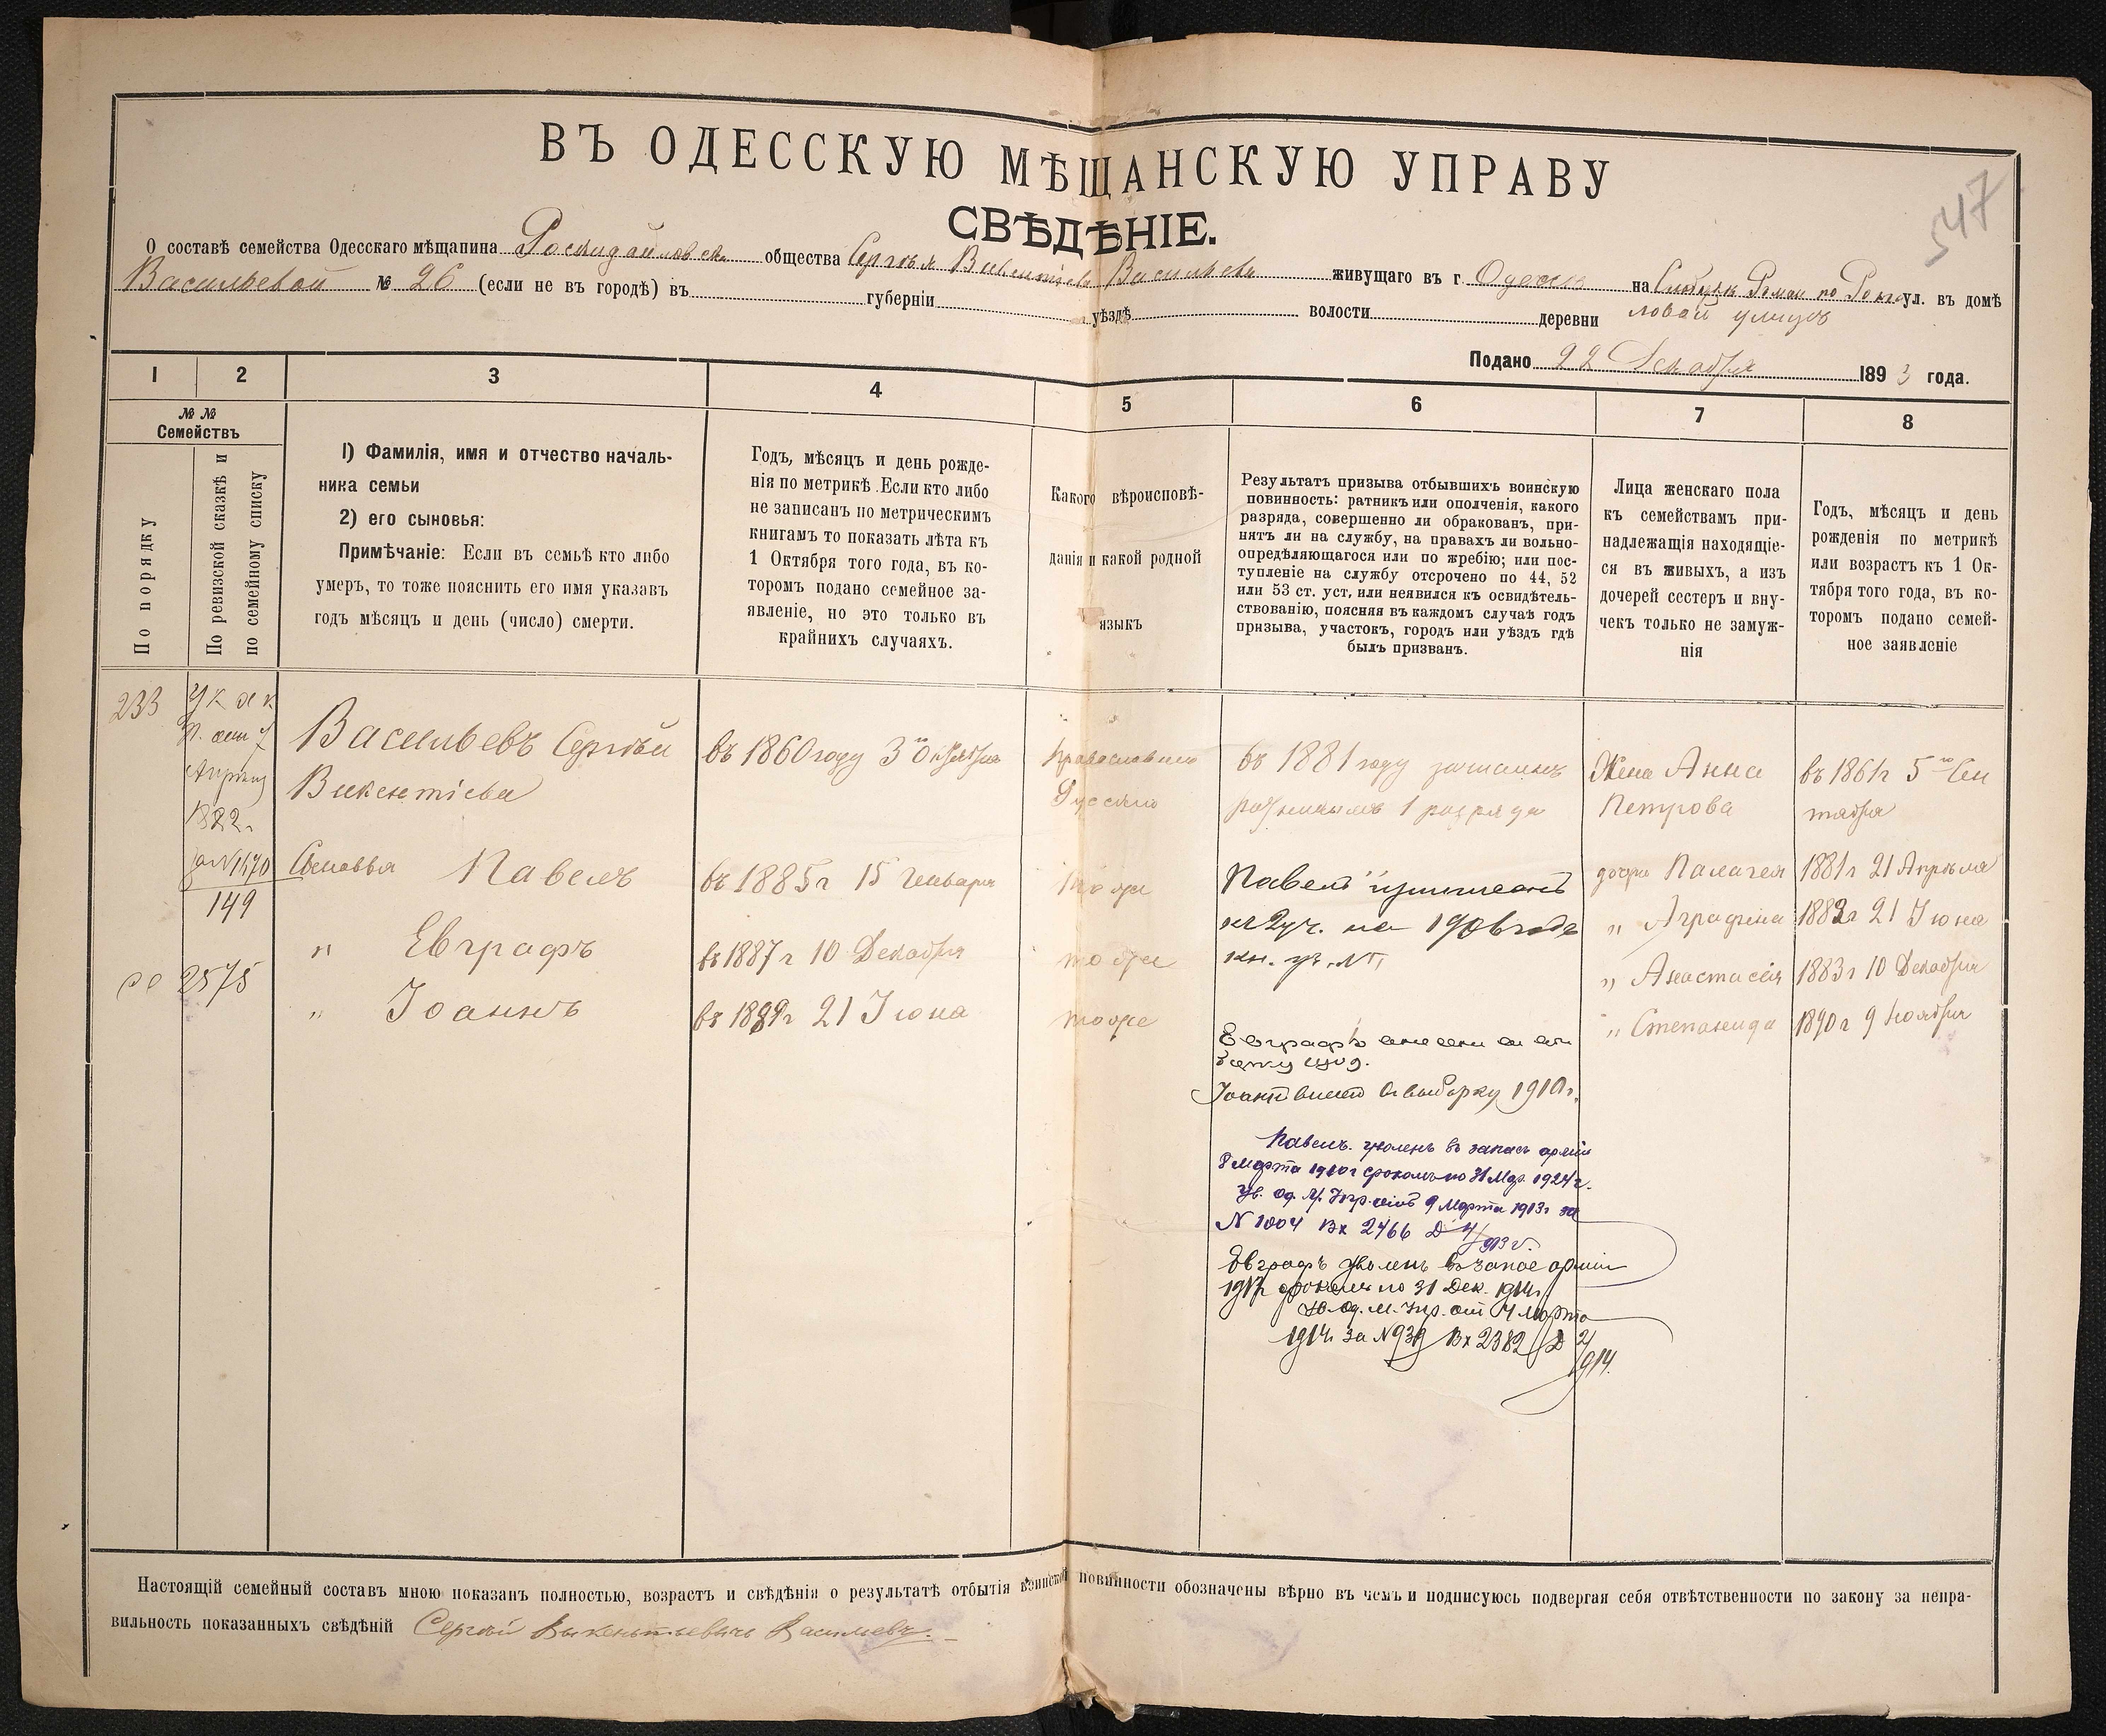 547
ВЪ ОДЕССКУЮ МѢЩАНСКУЮ УПРАВУ
СВѢДѢНІЕ.
О составѣ семейства Одесскаго мѣщанина общества Сергѣя Викентіева Васильева живущаго въ г. Одессѣ на ул. въ домѣ
Васильевой № 26 (если не въ городѣ) въ губерніи уѣздѣ волости деревни ловой улицѣ
Подано 22 Декабря 1893 года.
1 2 3 4 5 6 7 8
№ № Семействъ
По порядку
По ревизской сказкѣ и
по семейному списку
1) Фамилія, имя и отчество началь-
ника семьи
2) его сыновья:
Примѣчаніе: Если въ семьѣ кто либо
умеръ, то тоже пояснить его имя указавъ
годъ мѣсяцъ и день (число) смерти.
Годъ, мѣсяцъ и день рожде-
нія по метрикѣ. Если кто либо
не записанъ по метрическимъ
книгамъ то показать лѣта къ
1 Октября того года, въ ко-
торомъ подано семейное за-
явленіе, но это только въ
крайнихъ случаяхъ.
Какого вѣроисповѣ-
данія и какой родной
языкъ
Результатъ призыва отбывшихъ воинскую
повинность: ратникъ или ополченія, какого
разряда, совершенно ли обракованъ, при-
нятъ ли на службу, на правахъ ли вольно-
опредѣляющагося или по жребію; или пос-
тупленіе на службу отсрочено по 44, 52
или 53 ст. уст. или неявился къ освидѣтель-
ствованію, поясняя въ каждомъ случаѣ годъ
призыва, участокъ, городъ или уѣздъ гдѣ
былъ призванъ.
Лица женскаго пола
къ семействамъ при-
надлежащія находящіе-
ся въ живыхъ, а изъ
дочерей сестеръ и вну-
чекъ только не замуж-
нія
Годъ, мѣсяцъ и день
рожденія по метрикѣ
или возрастъ къ 1 Ок-
тября того года, въ ко-
торомъ подано семей-
ное заявленіе
233
1882 г
149
2575
Васильевъ Сергѣй
Викентіева
Сыновья Павелъ
" Евграфъ
" Іоаннъ
въ 1860 году 3го Октября
въ 1885 г 15 Генваря
въ 1887 г 10 Декабря
въ 1889 г 21 Іюна
Православнаго
Русскаго
тоже
тоже
тоже
въ 1881 году
ратникомъ 1 разряда
Павелъ
2 уч. на 1906 годъ
Евграфъ
Іоаннъ внесенъ въ выборку 1910 г.
Павелъ уволенъ въ запасъ арміи
8 Марта 1910 г срокомъ по 31 Мар. 1924 г.
Ув. Од. М. Упр. отъ 9 Марта 1913 г за
N 1004 Вх 2466 Д 4/913 г.
Евграфъ уволенъ въ запас арміи
срокомъ по 31 Дек.
Ув. Од. М. Упр. от 4 Марта
1914 г за N 939 Вх 2382 Д 2/914.
Жена Анна
Петрова
дочери Палагея
" Аграфина
" Анастасія
" Степанида
въ 1861 г 5го Сен
тября
1881 г 21 Апрѣля
1882 г 21 Іюна
1883 г 10 Декабря
1890 г 9 Ноября
Настоящій семейный составъ мною показанъ полностью, возрастъ и свѣдѣнія о результатѣ отбытія воинской повинности обозначены вѣрно въ чемъ и подписуюсь подвергая себя отвѣтственности по закону за непра-
вильность показанныхъ свѣдѣній Сергѣй Викентьевичъ Васильевъ.